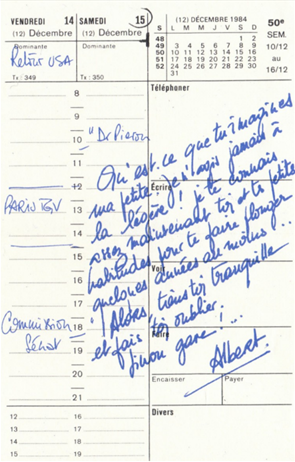 VENDREDI 14 SAMEDI 15
(12) Décembre (12) Décembre
Dominante Dominante
Retour USA
Ts : 349 Ts : 350
(12) DÉCEMBRE 1984
S L M M J V S D
48 1 2
49 3 4 5 6 7 8 9
50 10 11 12 13 14 15 16
51 17 18 19 20 21 22 23
52 24 25 26 27 28 29 30
31
50e
SEM.
10/12
au
16/12
Téléphoner
8
9
10
"Dr Pieron
11
Qu'est-ce que tu imagines
ma petite! je n'agis jamais à
la légère! je te connais
assez maintenant toi et tes petites
habitudes pour te faire plonger
quelques années au moins...
"Alors" tiens toi tranquille
et fais toi oublier.
Sinon gare!...
Albert.
12
Écrire
PARIN TBV
13
14
15
16
Voir
17
Commission
Sénat
18
19
Faire
20
21
Encaisser Payer
12 16
13 17
14 18
15 19
Divers